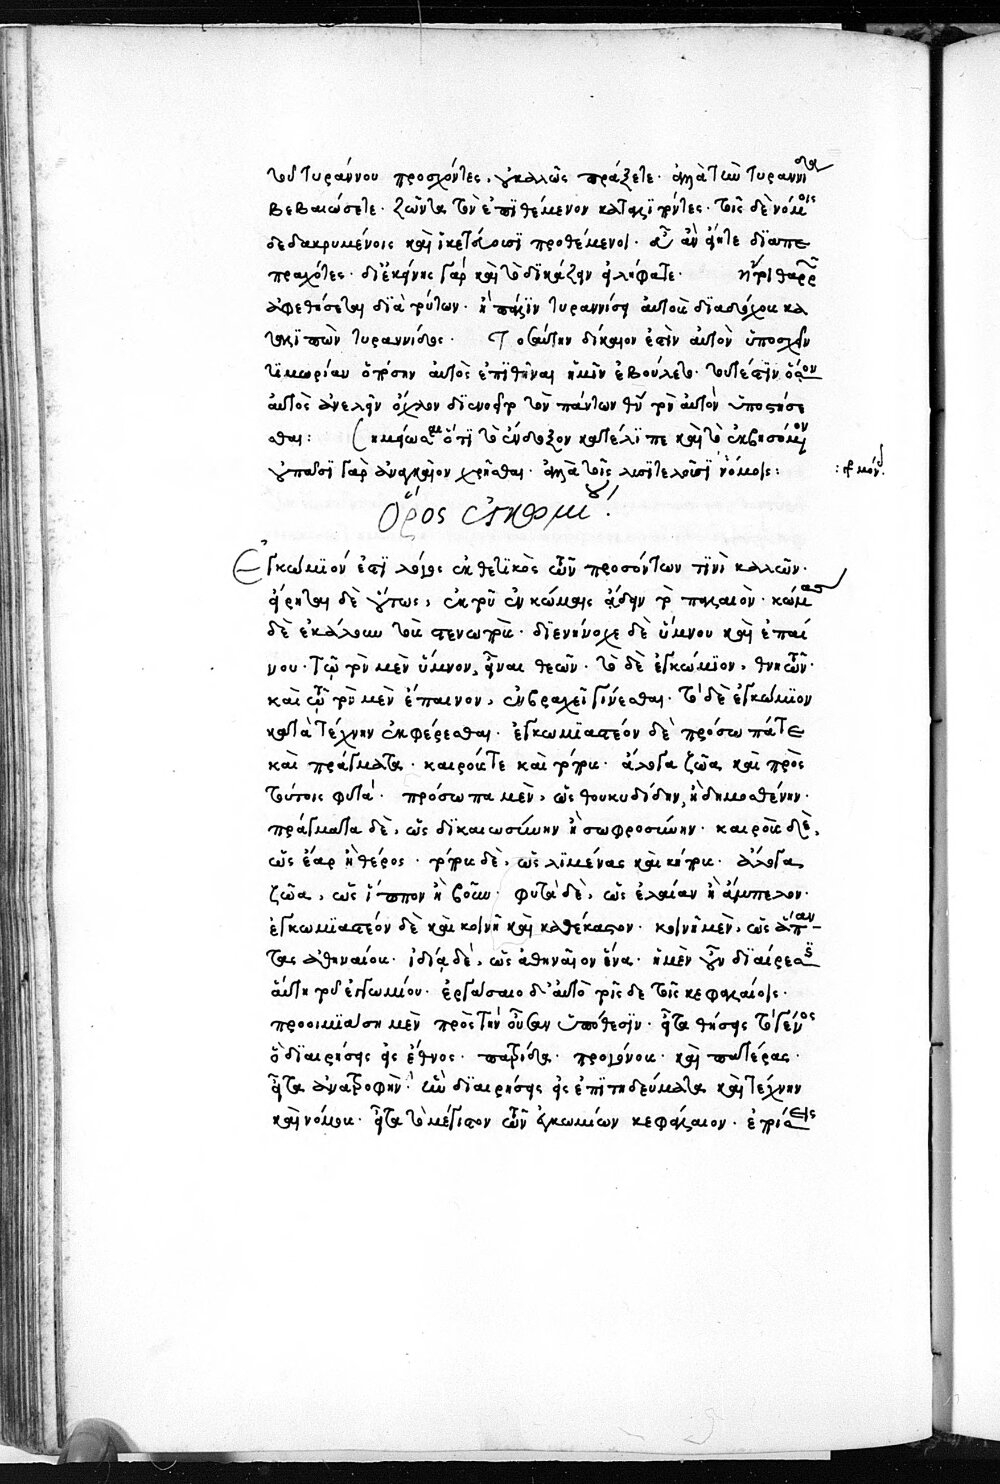 τοῦ τυράννου προσχόντες, οὐ καλῶς πράξετε· ἀλλὰ τὴν τυραννίδα
βεβαιώσετε· ζῶντα τὸν ἐπιθέμενον καταλιπόντες· τοῖς δὲ νόμοις
δεδακρυμένοις καὶ ἱκετεύουσι προθέμενοι· ἃ ἂν ἦτε διαπε
πραχότες· δι' ἐκείνης γὰρ καὶ τὸ δικάζειν εἰλήφατε·
ἀφεθήσεται διὰ τούτων· ἢ πάλιν τυραννίση αὐτοὺς διαδόχους κα
ταλιπὼν τυραννίδος· τοσαύτην δίκαιον ἐστὶν αὐτὸν ὑποσχεῖν
τιμωρίαν ὅσην αὐτὸς ἐπιθῆναι ἡμῖν ἐβούλετο· τουτέστιν ὅσον
αὐτὸς ἀνελεῖν τὸν πάντων αὐτὸν ὑποστήσε
σθαι: σημείωσαι ὅτι τὸ ἔνδοξον κατέλιπε καὶ τὸ ἐκβησόμενον
οὐ πᾶσι γὰρ ἀναγκαῖον χρῆσθαι· ἀλλὰ τοῖς λυσιτελοῦσι νόμοις:
Ὅρος ἐγκωμίου:
Ἐγκώμιόν ἐστι λόγος ἐκθετικὸς τῶν προσόντων τινὶ καλῶν·
εἴρηται δὲ οὕτως, ἐκ τοῦ ἐν κώμαις ᾄδειν τὸ παλαιόν· κώμας
δὲ ἐκάλουν τοὺς στενωπούς· διενήνοχε δὲ ὕμνου καὶ ἐπαί
νου· τῷ τὸν μὲν ὕμνον, εἶναι θεῶν· τὸ δὲ ἐγκώμιον, θνητῶν·
καὶ τῷ τὸν μὲν ἔπαινον, ἐν βραχεῖ γίνεσθαι· τὸ δὲ ἐγκώμιον
κατὰ τέχνην ἐκφέρεσθαι· ἐγκωμιαστέον δὲ πρόσωπά τε
καὶ πράγματα· καιρούς τε καὶ τόπους· ἄλογα ζῶα καὶ πρὸς
τούτοις φυτά· πρόσωπα μὲν, ὡς θουκυδίδην, ἢ δημοσθένην·
πράγματα δὲ, ὡς δικαιωσύνην ἢ σωφροσύνην· καιροὺς δὲ,
ὡς ἔαρ ἢ θέρος· τόπους δὲ, ὡς λιμένας καὶ κήπους· ἄλογα
ζῶα, ὡς ἵππον ἢ βοῦν· φυτὰ δὲ, ὡς ἐλαίαν ἢ ἄμπελον·
ἐγκωμιαστέον δὲ καὶ κοινῆ καὶ καθέκαστον· κοινῆ μὲν, ὡς ἅπαν
τας ἀθηναίους· ἰδία δὲ, ὡς ἀθηναῖον ἕνα· ἡ μὲν οὖν διαίρεσις
αὕτη τοῦ ἐγκωμίου· ἐργάσαιο δ' αὐτὸ τοῖς δε τοῖς κεφαλαίοις·
προοιμιάση μὲν πρὸς τὴν οὖσαν ὑπόθεσιν· εἶτα θήσεις τὸ γένος
ὃ διαιρήσεις εἰς ἔθνος· πατρίδα· προγόνους· καὶ πατέρας·
εἶτα ἀναστροφὴν· ἣν διαιρήσεις εἰς ἐπιτηδεύματα καὶ τέχνην
καὶ νόμους· εἶτα τὸ μέγιστον τῶν ἐγκωμίων κεφάλαιον·